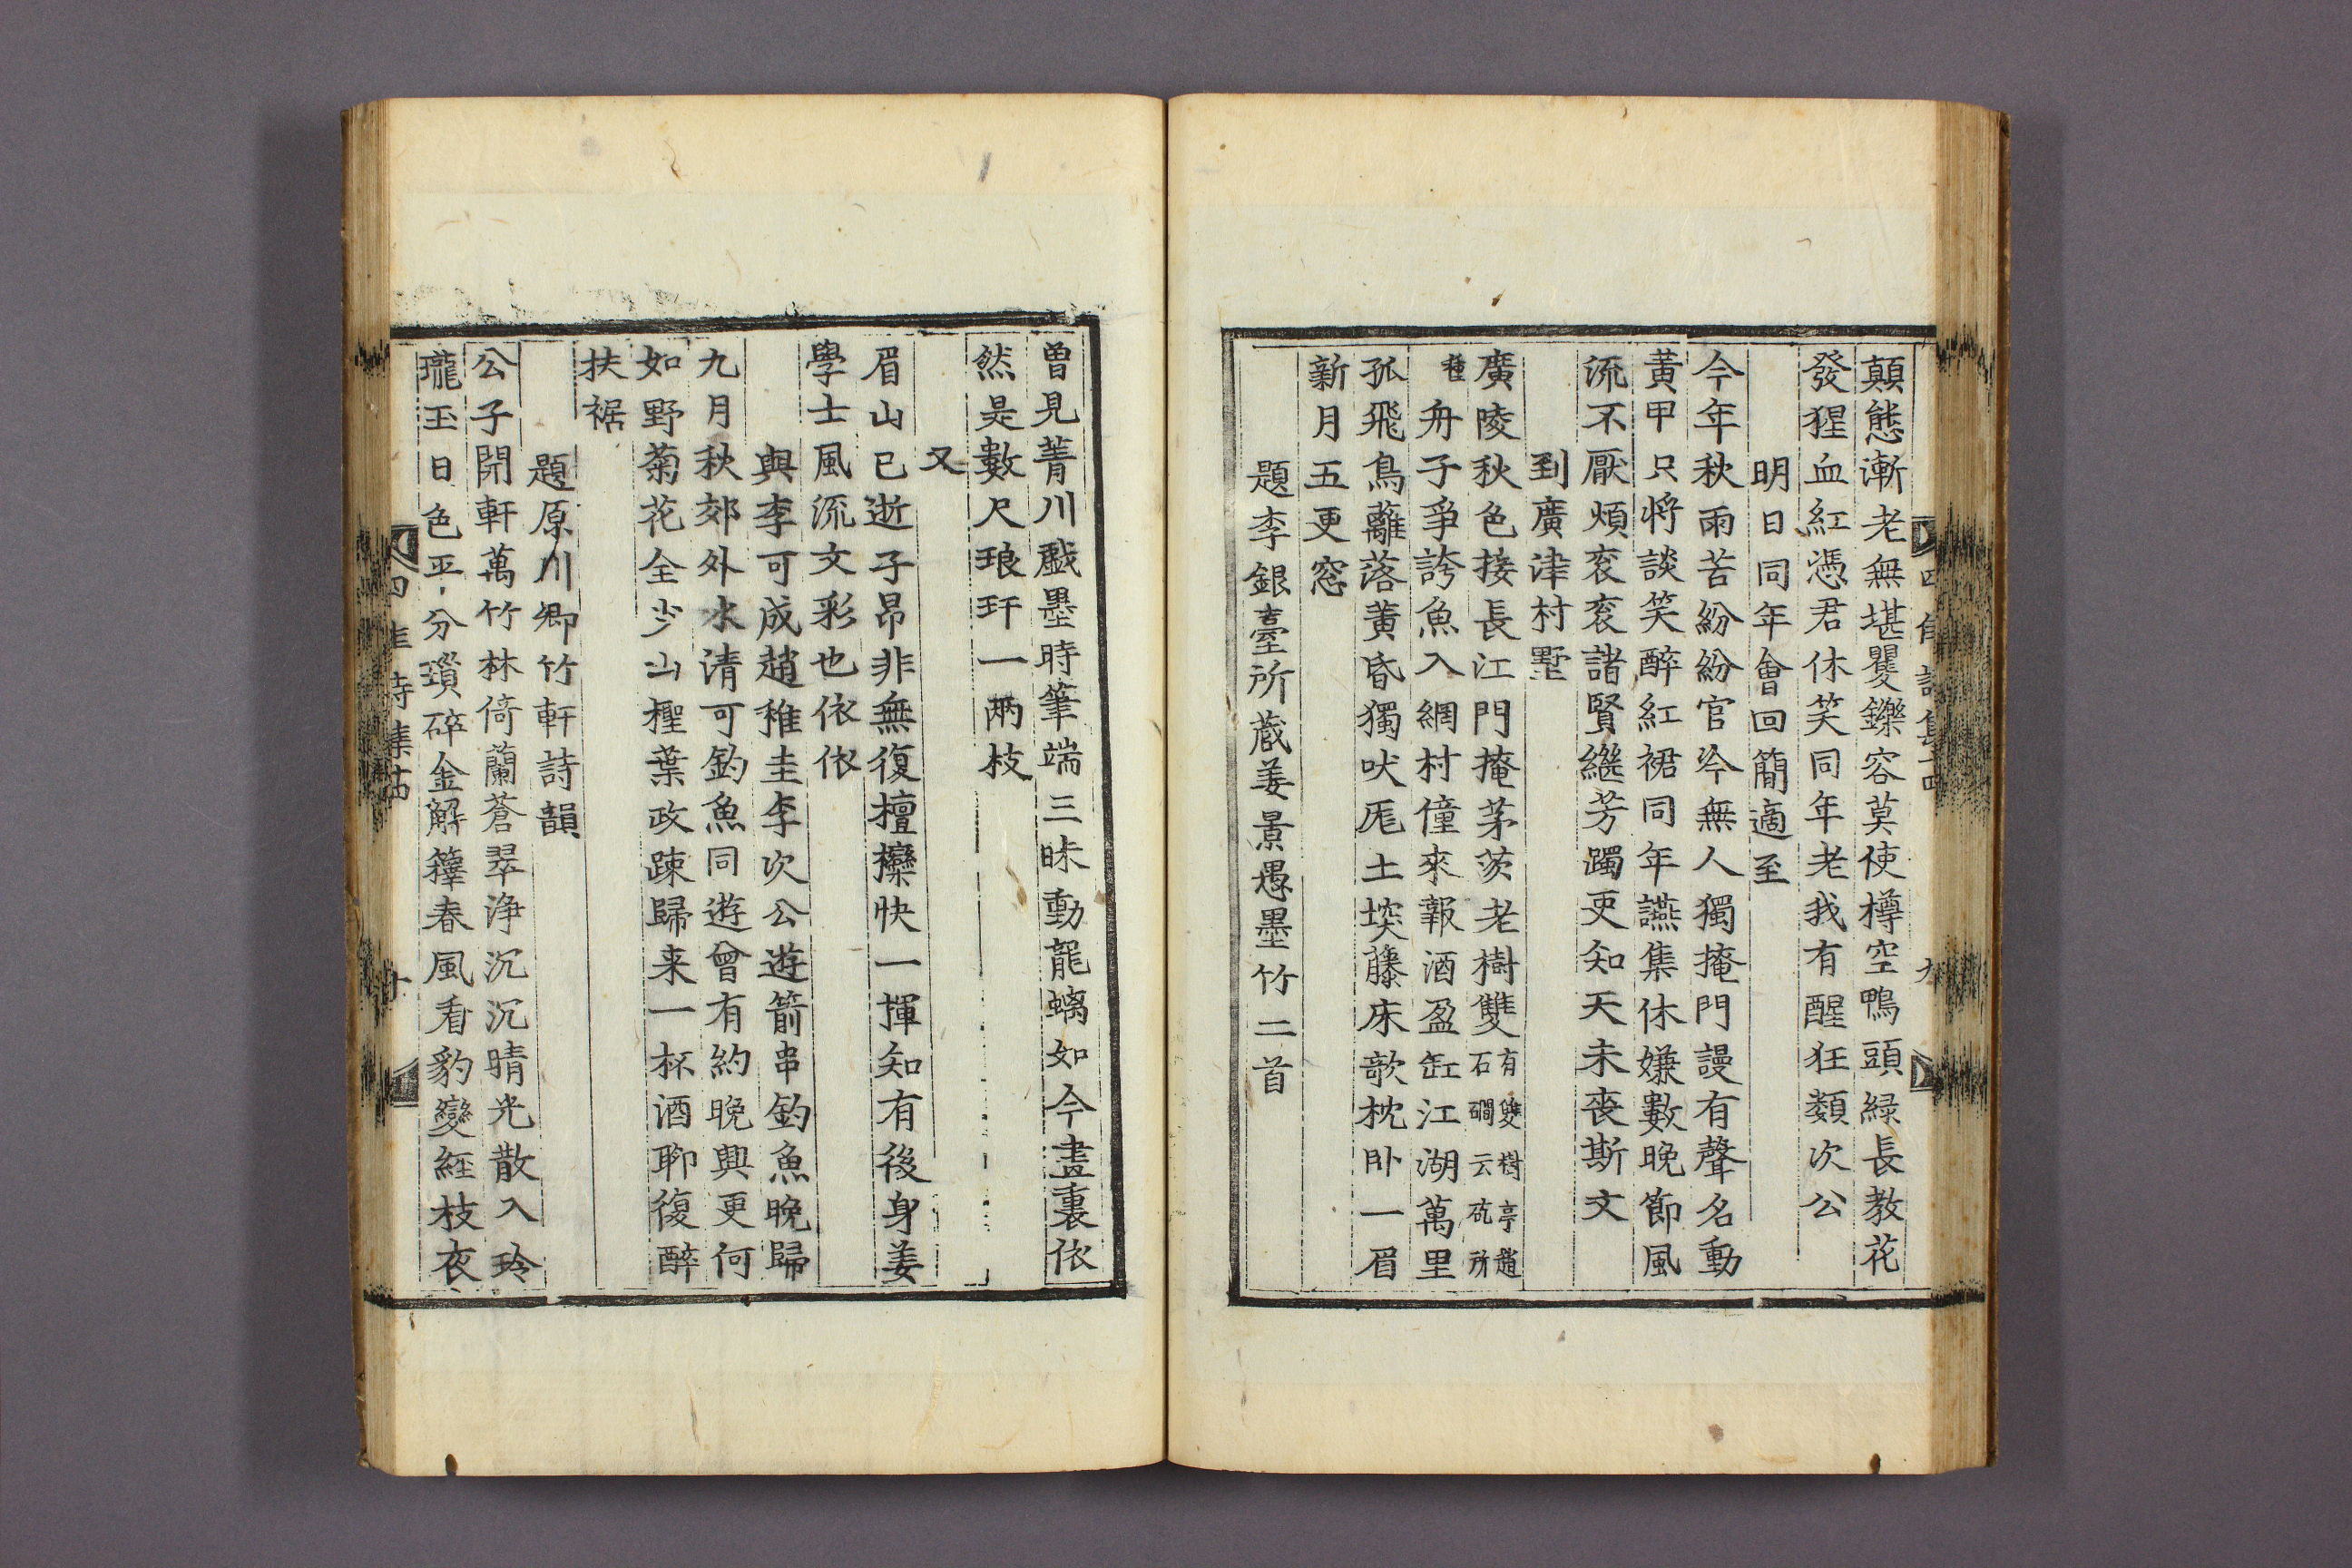 顛態漸老無堪矍鑠容莫使樽空鴨頭緑長教花
發猩血紅憑君休笑同年老我有醒狂類次公
明日同年會回簡適至
今年秋雨苦紛紛官冷無人獨掩門謾有聲名動
黃甲只將談笑醉紅裙同年讌集休嫌數晚節風
流不厭煩衮衮諸賢繼芳躅更知天未喪斯文
到廣津村墅
廣陵秋色接長江門掩茅茨老樹雙有雙樹亭趙
石磵云仡所
種舟子爭誇魚入網村僮來報酒盈缸江湖萬里
孤飛鳥籬落黃昏獨吠厖土埃藤床欹枕卧一眉
新月五更窓
題李銀臺所藏姜景愚墨竹二首
曽見菁川戱墨時筆端三昧動龍螭如今畫裏依
然是數尺琅玕一兩枝
又
眉山已逝子昂非無復檀欒快一揮知有後身姜
學士風流文彩也依依
與李可成趙稚圭李次公遊箭串釣魚晚歸
九月秋郊外水清可釣魚同遊曾有約晚興更何
如野菊花全少山檉葉政踈歸来一杯酒聊復醉
扶裾
題原川卿竹軒詩韻
公子開軒萬竹林倚蘭蒼翠浄沉沉晴光散入玲
瓏玉日色平分瑣碎金解籜春風看豹變経枝夜
四 詩集
十